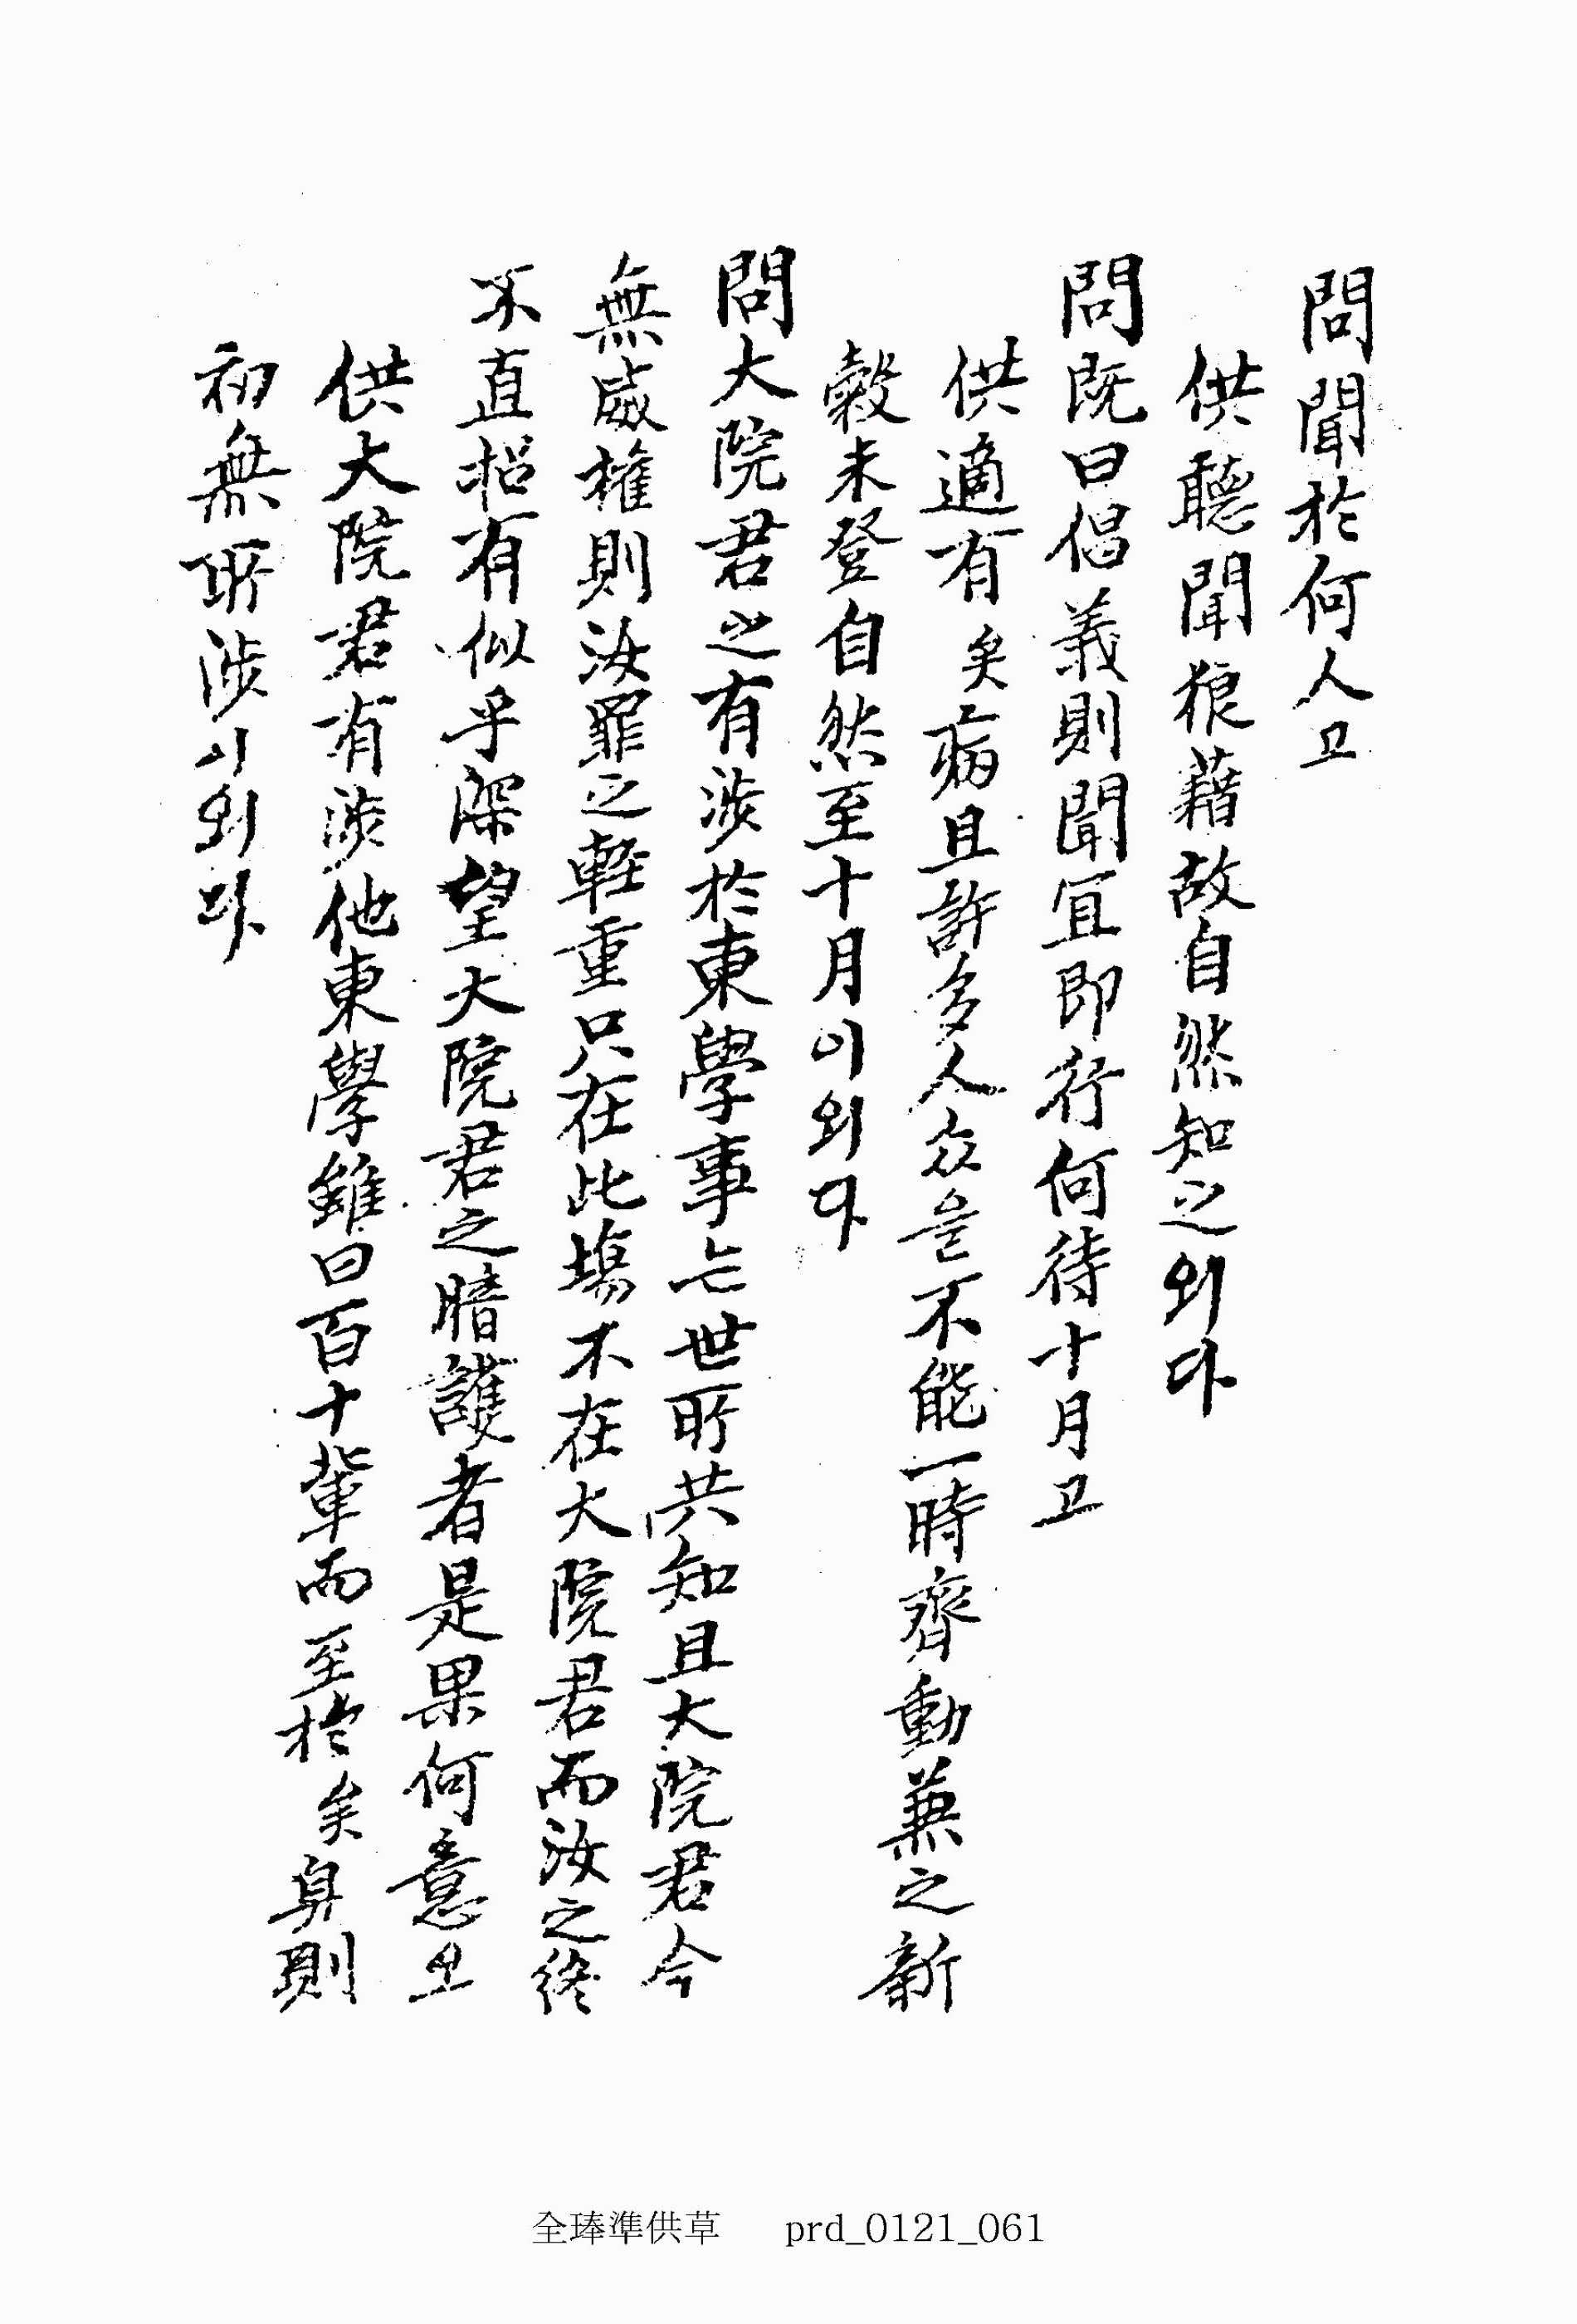 問聞於何人고
供聽聞狼藉故自然知之외다
問旣曰倡義則聞宜卽行何待十月고
供適有矣病且許多人众을不能一時齊動兼之新
糓未登自然至十月이외다
問大院君之有涉於東學事는世所共知且大院君今
無威權則汝罪之輕重只在此塲不在大院君而汝之終
不直招有似乎深望大院君之暗護者是果何意오
供大院君有涉他東學雖曰百十輩而至於矣身則
初無所涉이외다
全琫準供草 prd_0121_061